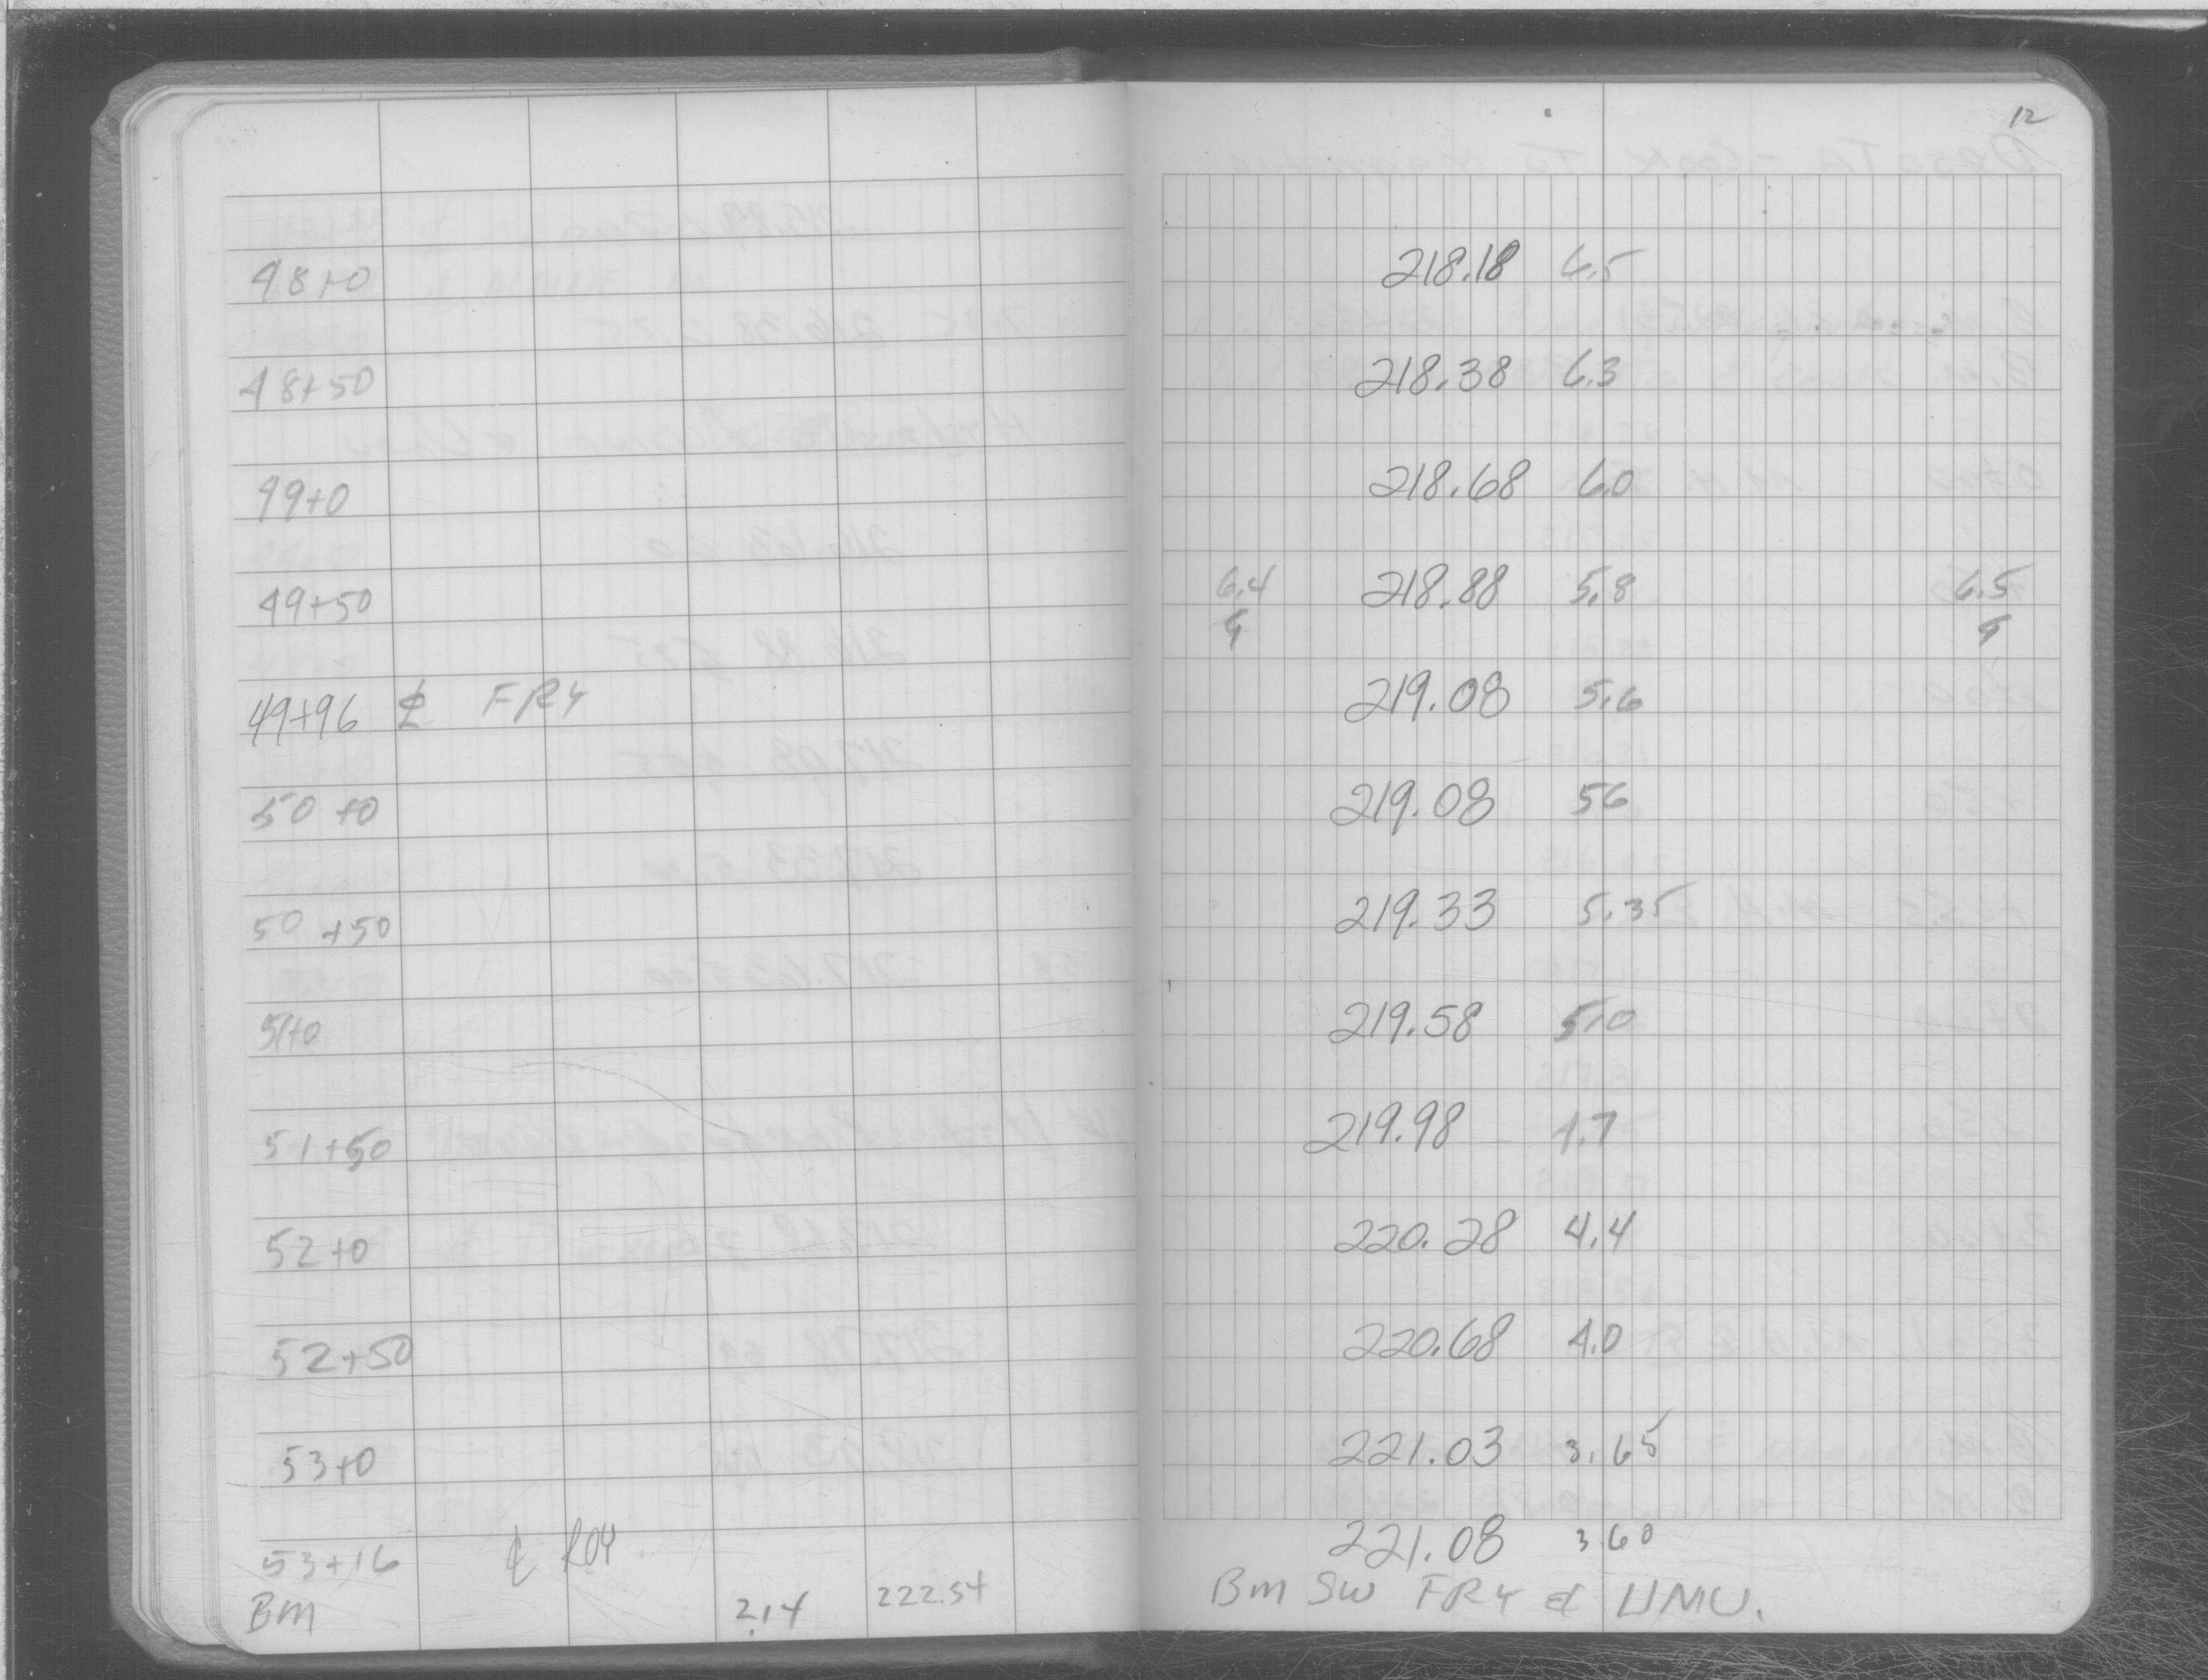 12
48+0 218.18 6.5
48+50 218.38 6.3
49+0 218.68 6.0
49+50 6.4 218.88 5.8 6.5
49+96 ℄ FRY 219.08 5.6
50+0 219.08 56
50+50 219.33 5.35
51+0 219.58 5.10
51+50 219.98 4.7
52+0 220.28 4.4
52+50 220.68 4.0
53+0 221.03 3.65
53+16 ℄ ROY 221.08 3.60
BM 2.14 222.54 BM SW FRY &